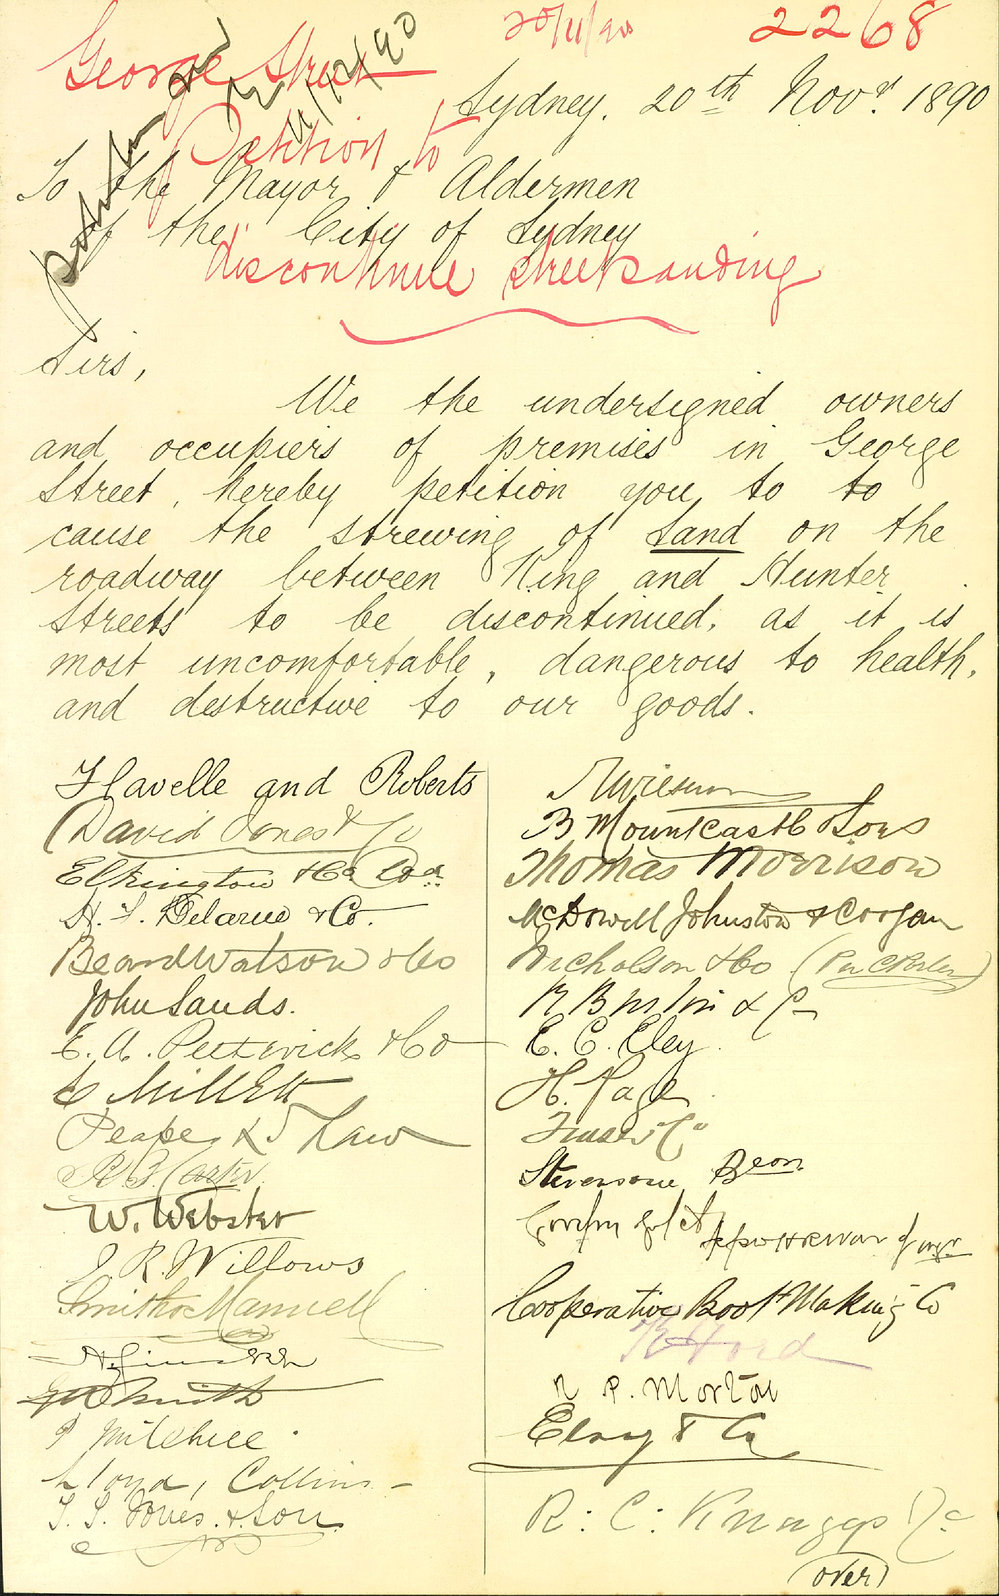 20/11/90
2268
George Street
Petition to
discontinue street sanding
11/12/90
Sydney, 20th Novr 1890
To the Mayor & Aldermen
of the City of Sydney
Sirs,
We the undersigned owners
and occupiers of premises in George
Street, hereby petition you, to to
cause the strewing of Sand on the
roadway between King and Hunter
Streets to be discontinued, as it is
most uncomfortable, dangerous to health,
and destructive to our goods.
Flavelle and Roberts
David Jones & Co
Elkington & Co
H. T. Delarue & Co.
Beard Watson & Co
John Sands.
E. A. & Co
Millett
Peape & Shaw
Carter
W. Webster
J R. Willows
Smith & Mannell
Smith
Mitchell
Lloyd, Collins
T. S. Jones & Son
B Mountcastle & Sons
Thomas Morrison
McDowell Johnston & Coogan
Nicholson & Co
& Co
E. C. Eley.
H. Page
Cooperative Boot Making Co
Ford
P. Morton
Elvy & Co
R: C: Knaggs & Co
(over)